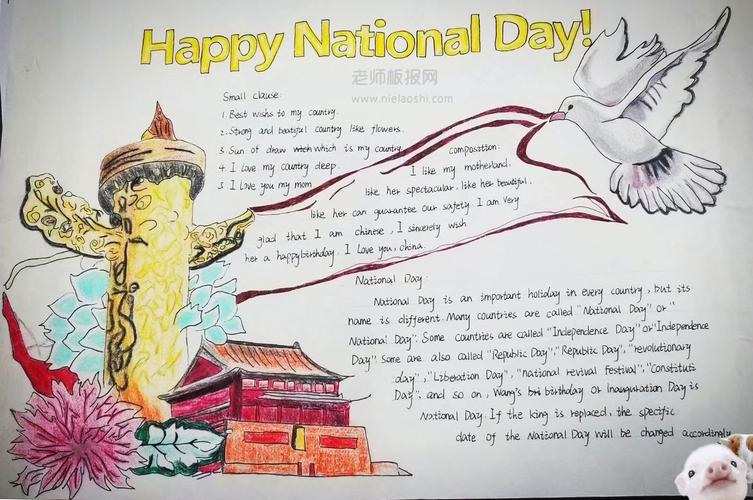 Happy National Day!
老师板报网
www.nielaoshi.com
Small clause:
1. Best wishes to my country.
2. Strong and beatiful country like flowers.
3 Sun of draw which is my country
4 I love my country deep.
5 I Love you my mom
composition:
I like my motherland.
like her spectacular, like her beautiful,
like her can guarantee our safety. I am very
glad that I am chinese, I sincerely wish
her a happy birthday. I Love you, china.
National Day:
National Day is an important holiday in every country, but its
name is different. Many countries are called "National Day" or "
National Day". Some countries are called "Independence Day" or "Independence
Day". Some are also called "Republic Day", "Republic Day", "revolutionary
day", "Liberation Day", "national revival festival", "Constituti
Day", and so on, Wang's birthday or Inauguration Day is
National Day. If the king is replaced, the specific
date of the National Day will be changed accordingly